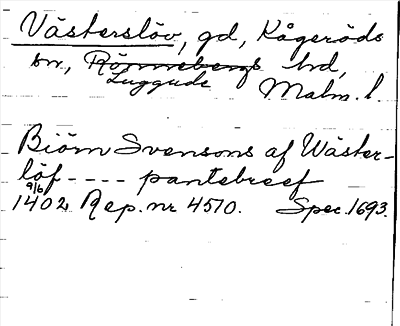 Västerslöv, gd, Kågeröds
sn, Rönnebergs hd,
Luggude Malm. l.
Biörn Svensons af Wäster-
löf - - - - pantebreef
9/6
1402 Rep. nr 4570. Spec. 1693.